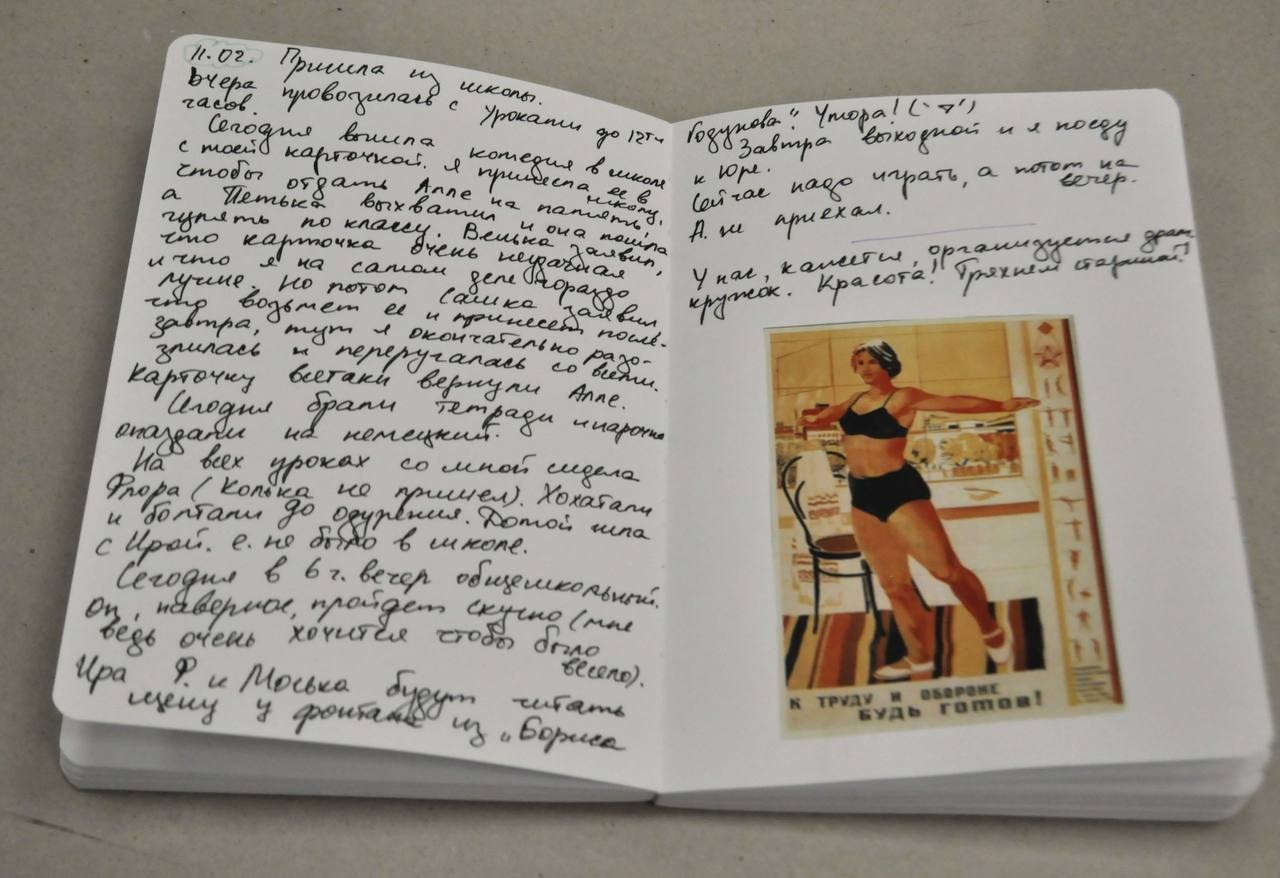 11.02. Пришла из школы.
Вчера провозилась с уроками до 12ти
часов.
Сегодня вышла комедия в школе
с моей карточкой. Я принесла ее в школу,
чтобы отдать Алле на память,
а Петька выхватил и она пошла
гулять по классу. Венька заявил,
что карточка очень неудачная
и что я на самом деле гораздо
лучше. Но потом Сашка заявил
что возьмет ее и принесет после-
завтра, тут я окончательно разо-
злилась и переругалась со всеми.
Карточку всетаки вернули Алле.
Сегодня брали тетради и нарочно
опаздали на немецкий.
На всех уроках со мной сидела
Флора (Колька не пришел). Хохотали
и болтали до одурения. Домой шла
с Ирой. Е. не было в школе.
Сегодня в 6 ч. вечер общешкольный.
Он, наверное, пройдет скучно (мне
ведь очень хочится чтобы было
весело).
Ира Ф. и Моська будут читать
сцену у фонтана из „Бориса
Годунова" Умора!
Завтра выходной и я поеду
к Юре.
Сейчас надо играть, а потом на
вечер.
А. не приехал.
У нас, кажется, организуется драм
кружок. Красота! Тряхнем стариной!
К ТРУДУ И ОБОРОНЕ
БУДЬ ГОТОВ!